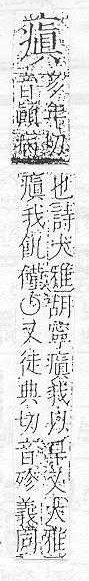 瘨
多年切
音顛病
也詩大雅胡寧瘨我以旱又大雅
瘨我飢饉○又徒典切音殄義同